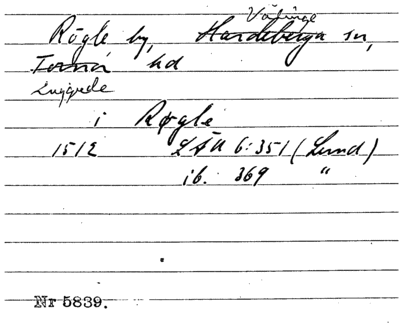 Välinge
Rögle by, Hardeberga sn,
Torna hd
Luggude
i Røgle
1512 LÄU 6:351 (Lund)
ib. 369 "
Nr 5839.